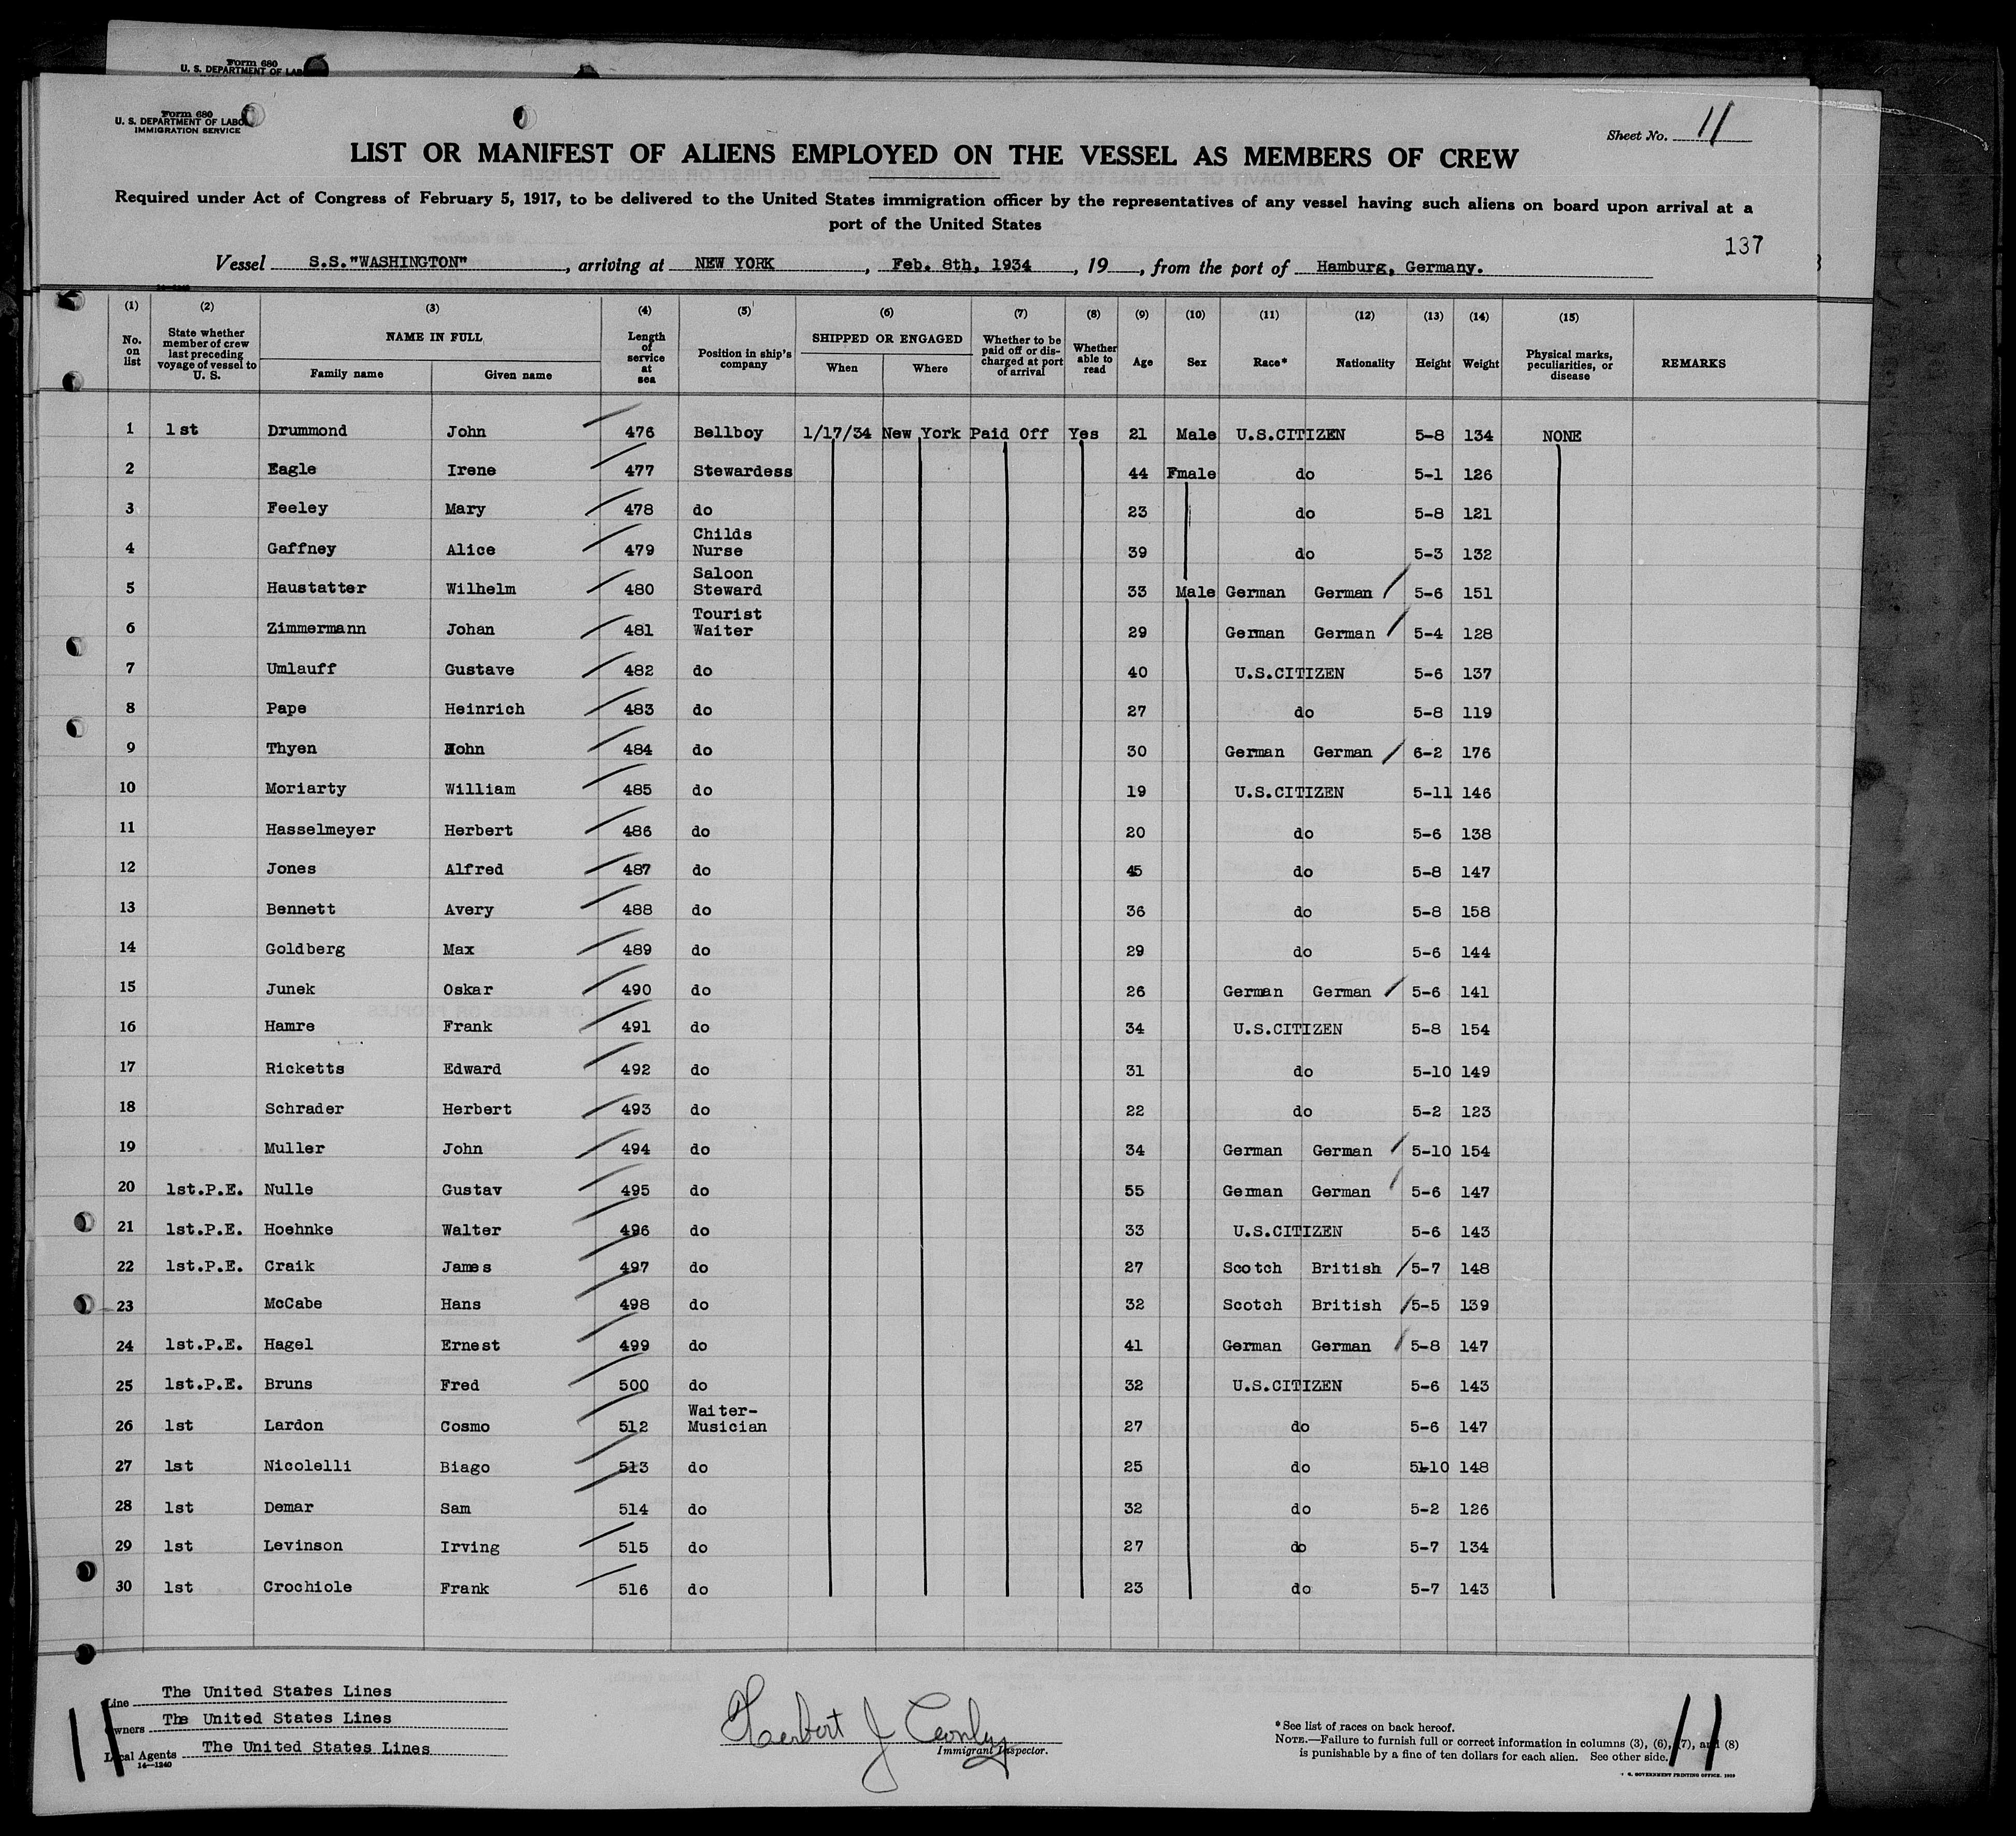 Form 680
U. S. DEPARTMENT OF LAB
Form 680
U. S. DEPARTMENT OF LABO
IMMIGRATION SERVICE
Sheet No. 11
LIST OR MANIFEST OF ALIENS EMPLOYED ON THE VESSEL AS MEMBERS OF CREW
Required under Act of Congress of February 5, 1917, to be delivered to the United States immigration officer by the representatives of any vessel having such aliens on board upon arrival at a
port of the United States
137
Vessel S.S."WASHINGTON", arriving at NEW YORK, Feb. 8th, 1934, 19, from the port of Hamburg, Germany.
(1) (2) (3) (4) (5) (6) (7) (8) (9) (10) (11) (12) (13) (14) (15)
No. on list State whether member of crew last preceding voyage of vessel to U. S. NAME IN FULL Family name Given name Length of service at sea Position in ship's company SHIPPED OR ENGAGED When Where Whether to be paid off or discharged at port of arrival Whether able to read Age Sex Race* Nationality Height Weight Physical marks, peculiarities, or disease REMARKS
1 1st Drummond John 476 Bellboy 1/17/34 New York Paid Off Yes 21 Male U.S.CITIZEN 5-8 134 NONE
2 Eagle Irene 477 Stewardess 44 Fmale do 5-1 126
3 Feeley Mary 478 do 23 do 5-8 121
4 Gaffney Alice 479 Childs Nurse 39 do 5-3 132
5 Haustatter Wilhelm 480 Saloon Steward 33 Male German German 5-6 151
6 Zimmermann Johan 481 Tourist Waiter 29 German German 5-4 128
7 Umlauff Gustave 482 do 40 U.S.CITIZEN 5-6 137
8 Pape Heinrich 483 do 27 do 5-8 119
9 Thyen John 484 do 30 German German 6-2 176
10 Moriarty William 485 do 19 U.S.CITIZEN 5-11 146
11 Hasselmeyer Herbert 486 do 20 do 5-6 138
12 Jones Alfred 487 do 45 do 5-8 147
13 Bennett Avery 488 do 36 do 5-8 158
14 Goldberg Max 489 do 29 do 5-6 144
15 Junek Oskar 490 do 26 German German 5-6 141
16 Hamre Frank 491 do 34 U.S.CITIZEN 5-8 154
17 Ricketts Edward 492 do 31 do 5-10 149
18 Schrader Herbert 493 do 22 do 5-2 123
19 Muller John 494 do 34 German German 5-10 154
20 1st.P.E. Nulle Gustav 495 do 55 German German 5-6 147
21 1st.P.E. Hoehnke Walter 496 do 33 U.S.CITIZEN 5-6 143
22 1st.P.E. Craik James 497 do 27 Scotch British 5-7 148
23 McCabe Hans 498 do 32 Scotch British 5-5 139
24 1st.P.E. Hagel Ernest 499 do 41 German German 5-8 147
25 1st.P.E. Bruns Fred 500 do 32 U.S.CITIZEN 5-6 143
26 1st Lardon Cosmo 512 Waiter-Musician 27 do 5-6 147
27 1st Nicolelli Biago 513 do 25 do 5-10 148
28 1st Demar Sam 514 do 32 do 5-2 126
29 1st Levinson Irving 515 do 27 do 5-7 134
30 1st Crochiole Frank 516 do 23 do 5-7 143
Line The United States Lines
Owners The United States Lines
Local Agents The United States Lines
14-1240
11
Herbert J Conley
Immigrant Inspector.
*See list of races on back hereof.
NOTE.—Failure to furnish full or correct information in columns (3), (6), (7), and (8)
is punishable by a fine of ten dollars for each alien. See other side.
11
GOVERNMENT PRINTING OFFICE